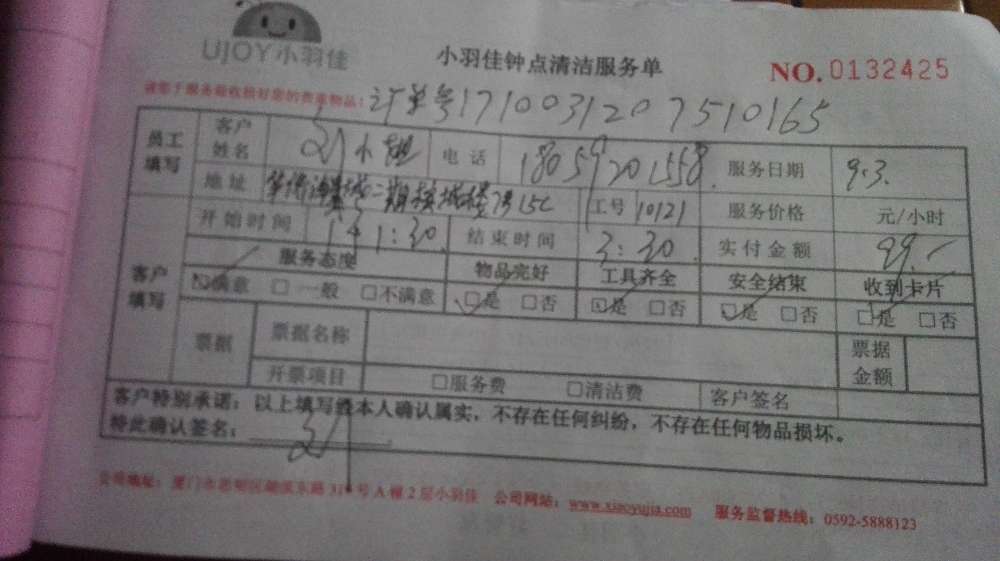 UJOY小羽佳
小羽佳钟点清洁服务单
NO.0132425
请您于服务前收拾好您的贵重物品：订单号1710031207510165
员工填写 客户姓名 刘小姐 电话 18059201558 服务日期 9.3.
地址 二期 7号15C 工号 10121 服务价格 元/小时
开始时间 1:30 结束时间 3:30 实付金额 99.-
客户填写 服务态度 物品完好 工具齐全 安全结束 收到卡片
☑满意 □一般 □不满意 ☑是 □否 ☑是 □否 ☑是 □否 ☑是 □否
票据 票据名称 票据金额
开票项目 □服务费 □清洁费 客户签名
客户特别承诺：以上填写经本人确认属实，不存在任何纠纷，不存在任何物品损坏。
特此确认签名：刘
公司地址：厦门市思明区湖滨东路 号A幢2层小羽佳 公司网站：www.xiaoyujia.com 服务监督热线：0592-5888123